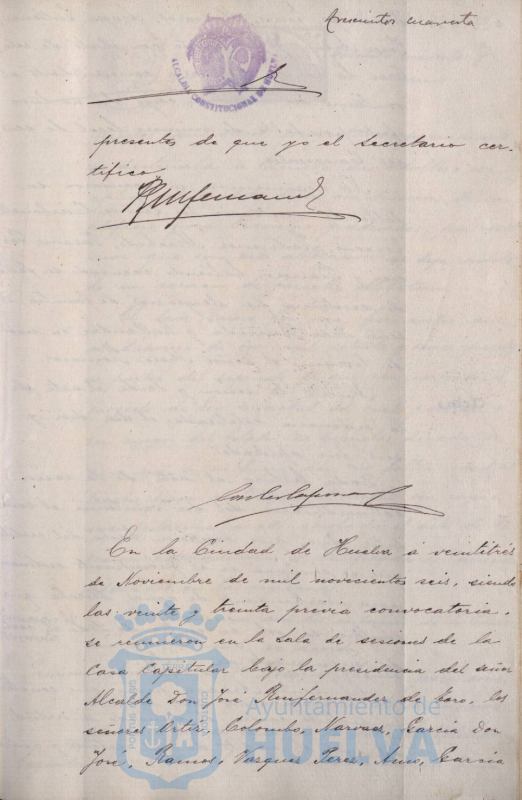 Trescientos cuarenta
ALCALDIA CONSTITUCIONAL DE HUELVA
presentes de que yo el Secretario cer-
tifico
En la Ciudad de Huelva á veintitrés
de Noviembre de mil novecientos seis, siendo
las veinte y treinta prévia convocatoria,
se reunieron en la Sala de sesiones de la
Casa Capitular bajo la presidencia del señor
Alcalde Don José Ruifernandez de Toro, los
señores Ortiz, Colombo, Narvaez, Garcia Don
José, Ramos, Vazquez Perez, Amo, Garcia
Ayuntamiento de
HUELVA